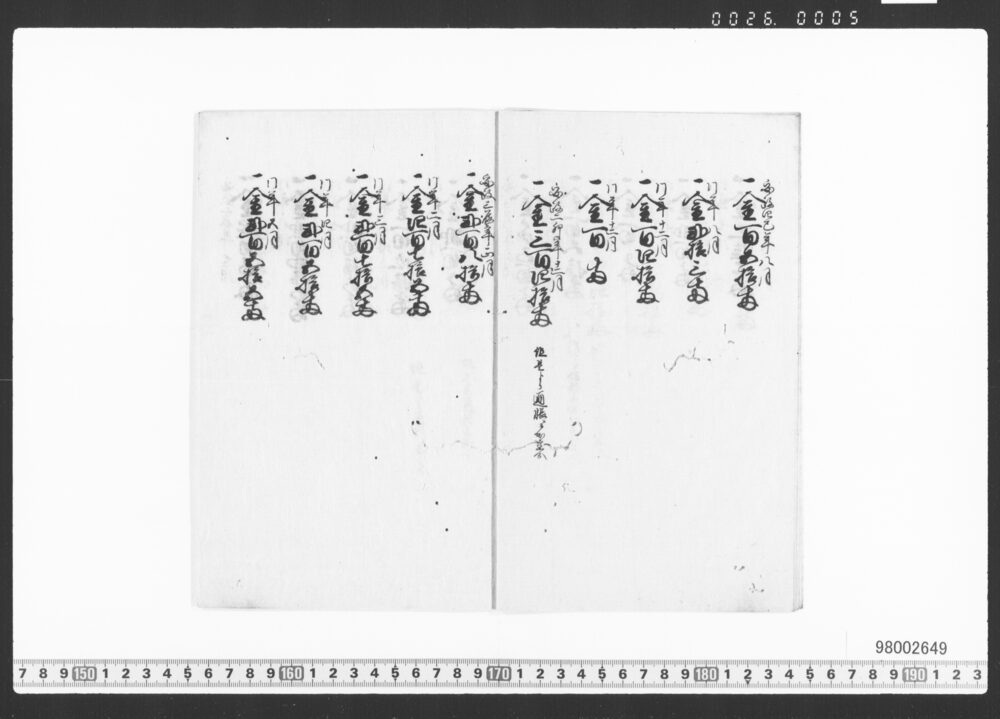 0026. 0005
安政四巳年八月
一金百五拾両
同年八月
一金弐拾三両
同年十二月
一金百四拾両
同年十二月
一金百両
安政二卯年十二月
一金三百四拾両
但是より通帳
安政三辰年正月
一金弐百八拾両
同年二月
一金四百七拾五両
同年三月
一金弐百七拾五両
同年四月
一金弐百五拾両
同年五月
一金弐百五拾五両
98002649
7 8 9 150 1 2 3 4 5 6 7 8 9 160 1 2 3 4 5 6 7 8 9 170 1 2 3 4 5 6 7 8 9 180 1 2 3 4 5 6 7 8 9 190 1 2 3